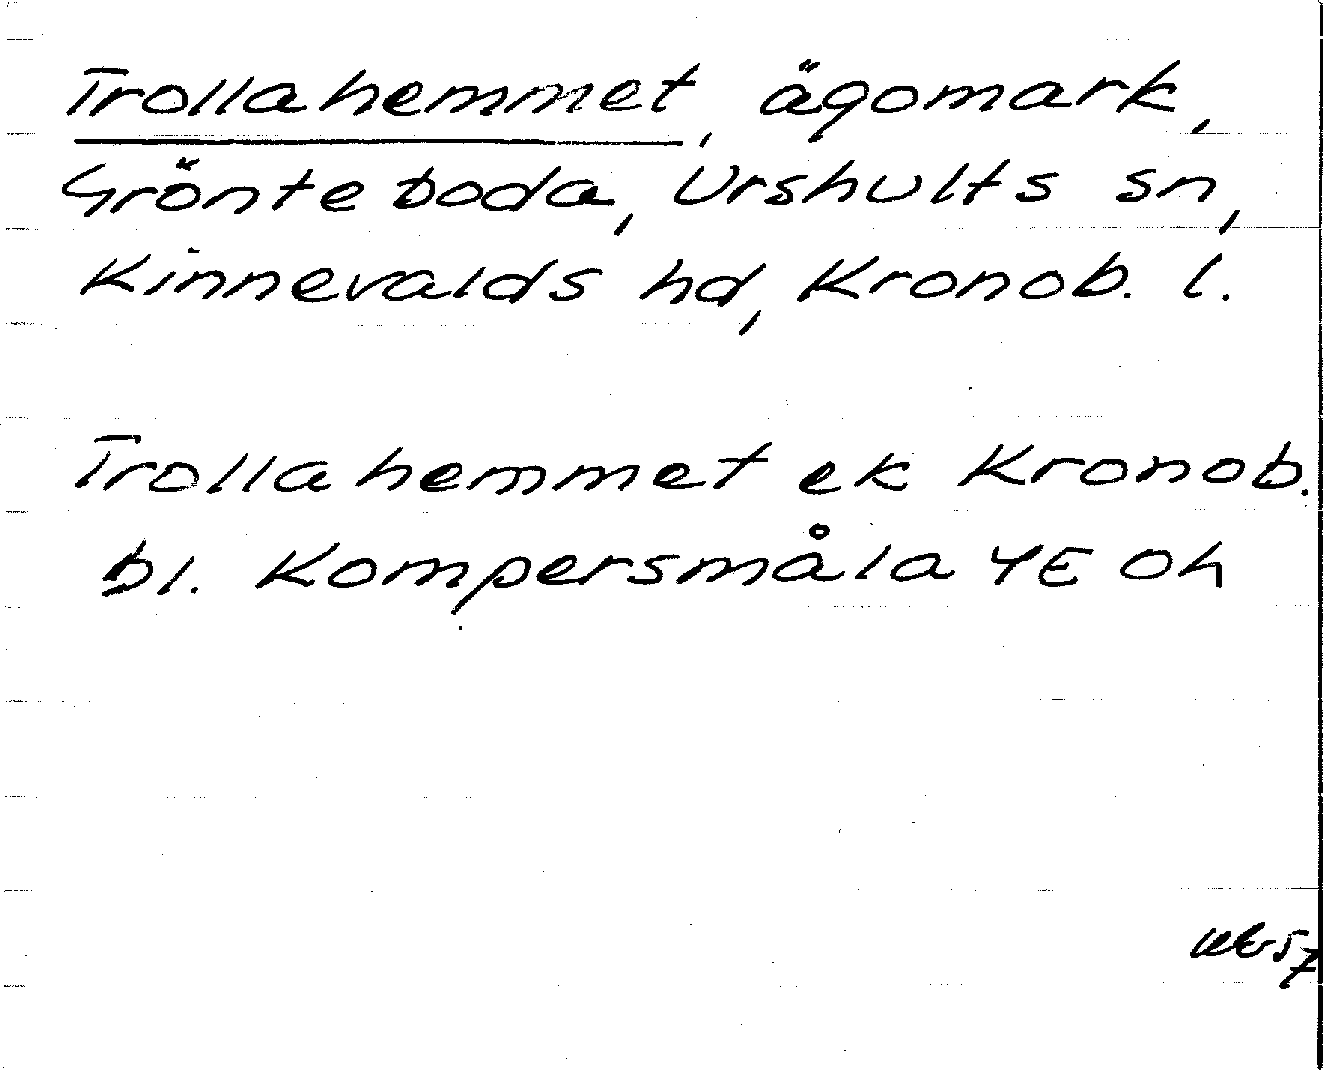 Trollahemmet, ägomark,
Grönteboda, Urshults sn,
Kinnevalds hd, Kronob. l.
Trollahemmet ek Kronob.
bl. Kompersmåla 4E Oh